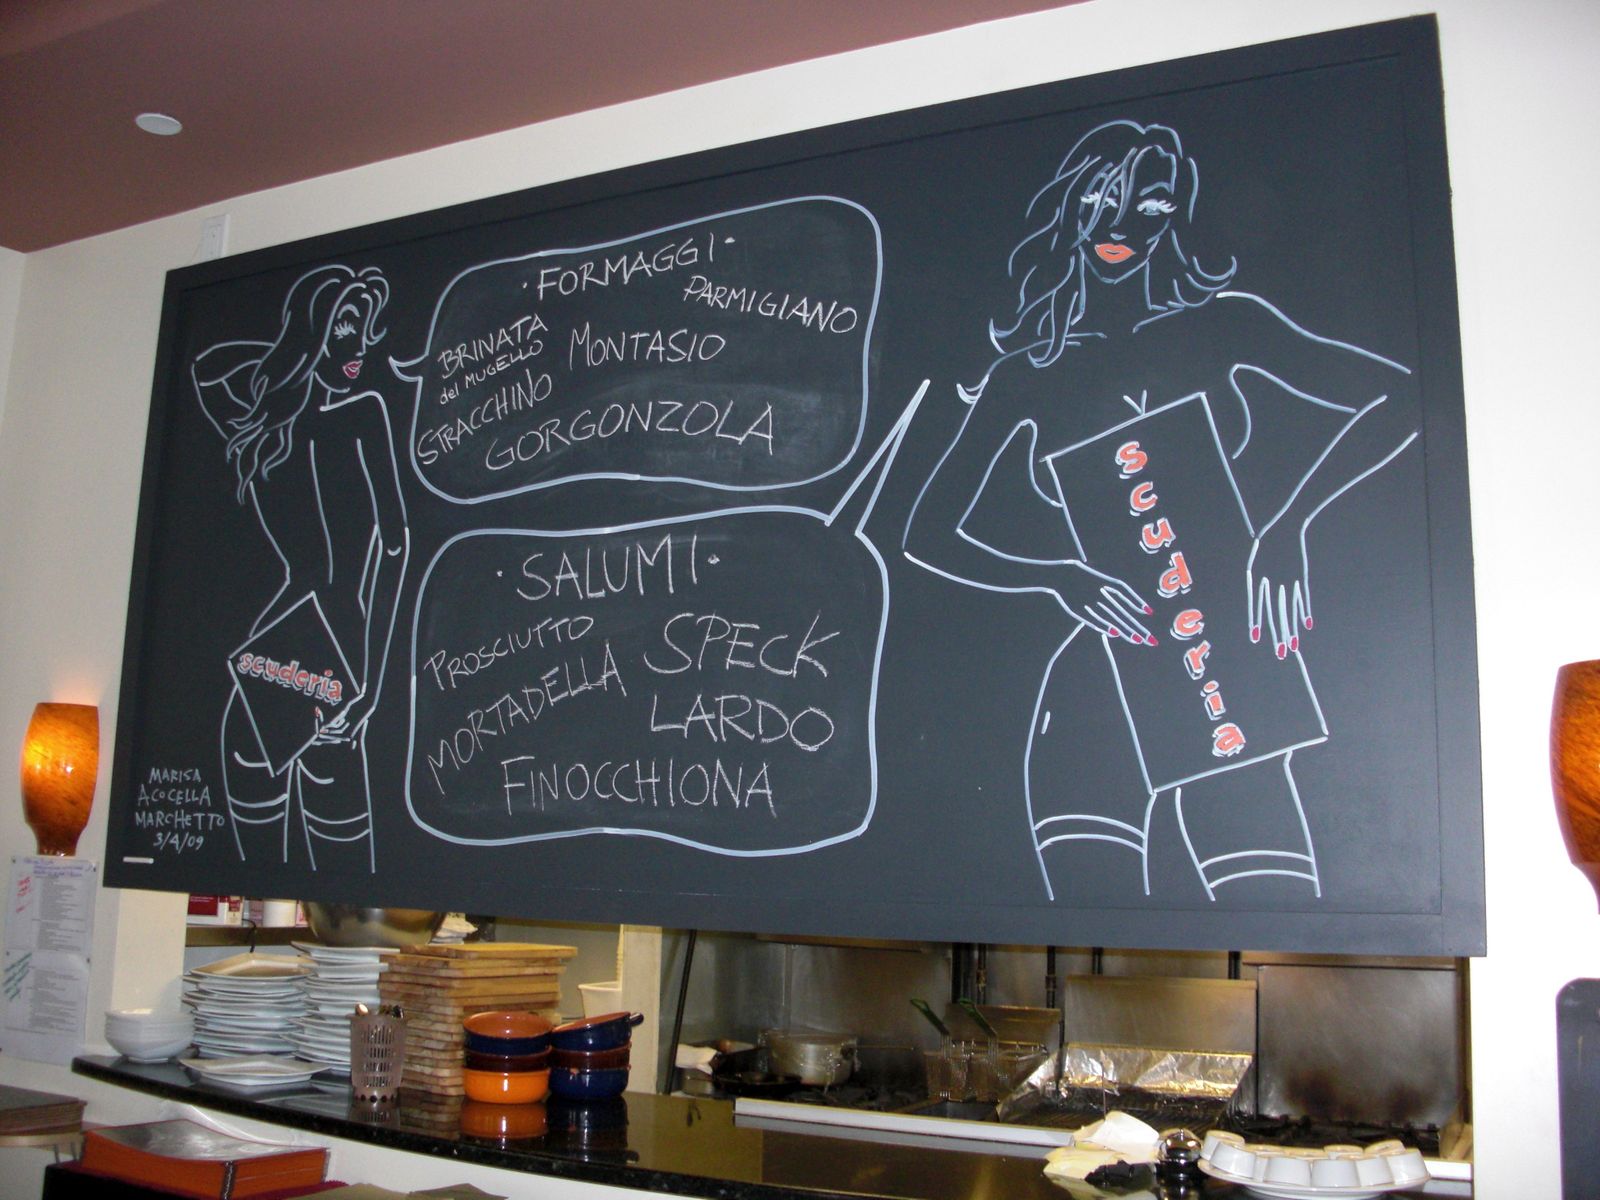 · FORMAGGI ·
PARMIGIANO
BRINATA
del MUGELLO
MONTASIO
STRACCHINO
GORGONZOLA
· SALUMI ·
PROSCIUTTO
SPECK
MORTADELLA
LARDO
FINOCCHIONA
scuderia
scuderia
MARISA
ACOCELLA
MARCHETTO
3/4/09